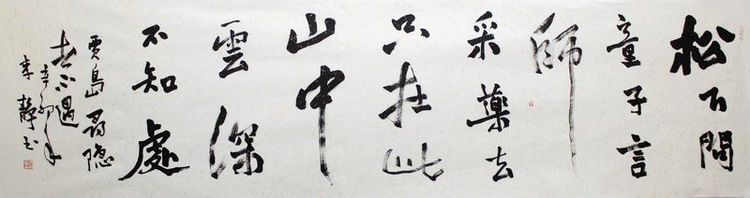 松下問
童子言
師
采藥去
只在此
山中
雲深
不知處
賈島尋隐
者不遇
辛卯年
李静书